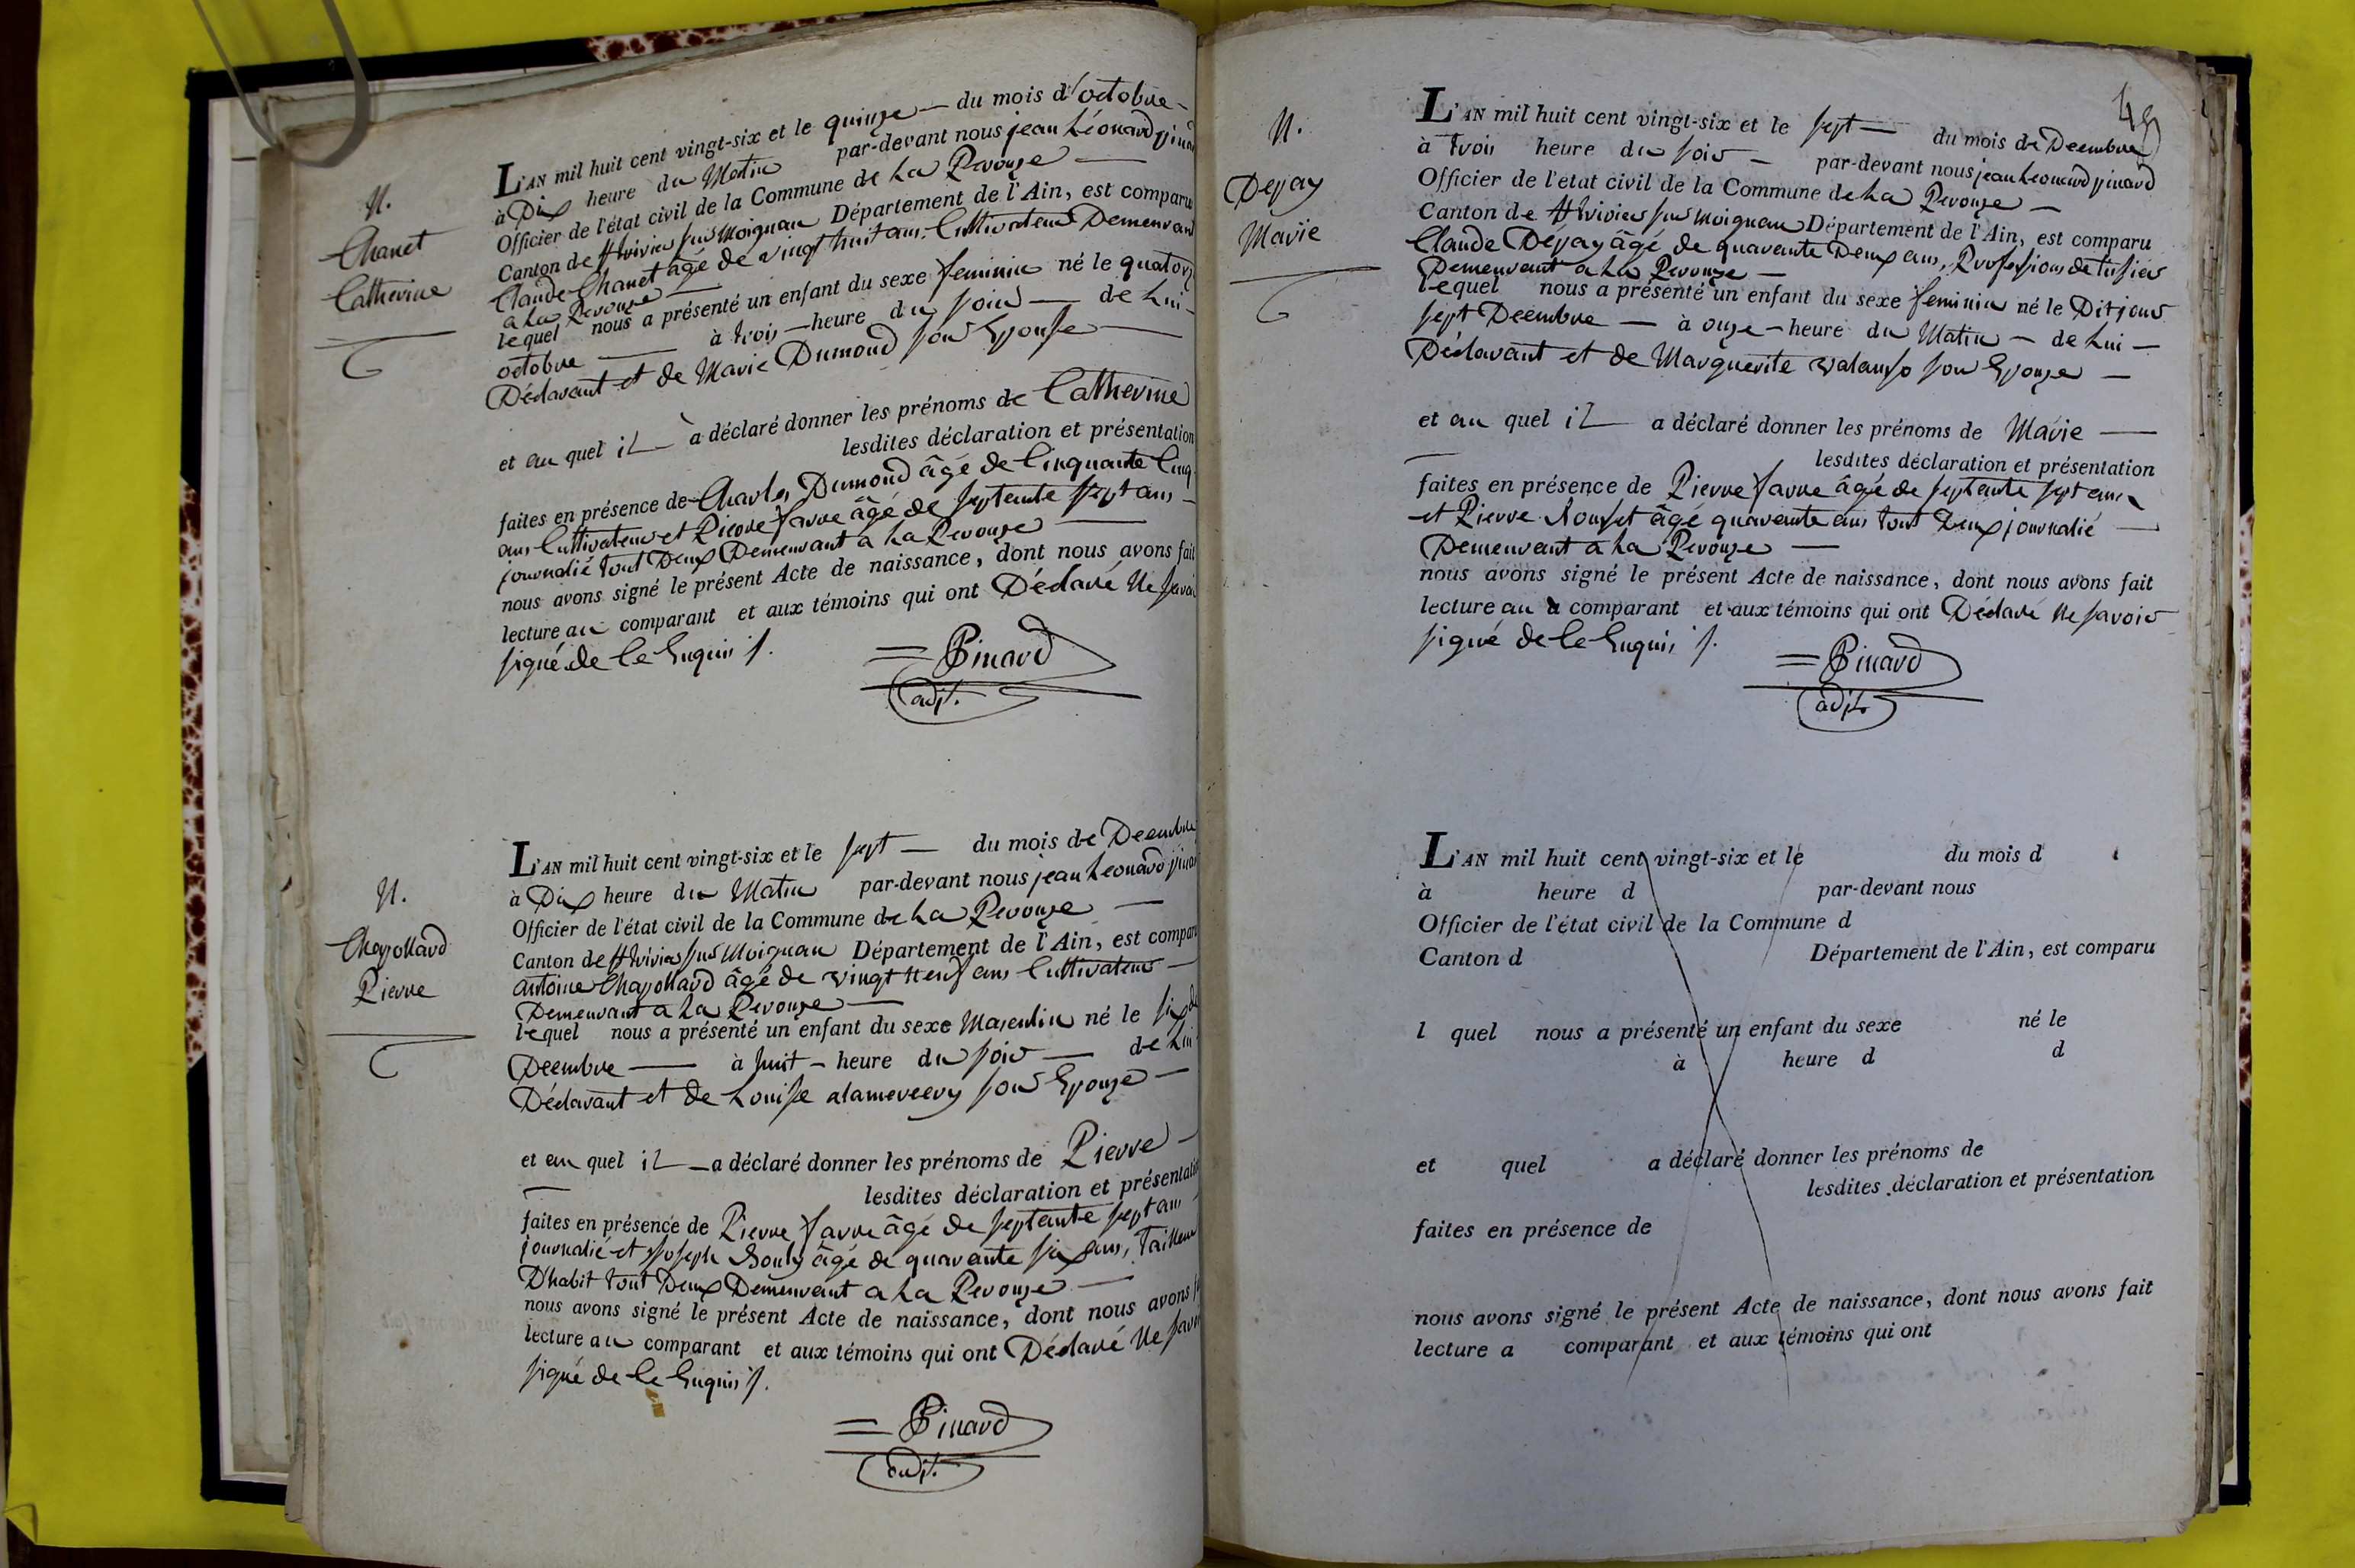 N.
Chanet
Catherine
L'AN mil huit cent vingt-six et le quinze du mois d'octobre
à Dix heure du Matin par-devant nous jean Léonard pinard
Officier de l'état civil de la Commune de La Perouze
Canton de St trivier sur Moignan Département de l'Ain, est comparu
Claude Chanet âgé de vingt huit ans, Cultivateur Demeurant
a La Perouze
lequel nous a présenté un enfant du sexe feminin né le quatorz
octobre à trois heure du soir de Lui
Déclarant et de Marie Dumond son Epouse
et au quel il a déclaré donner les prénoms de Catherine
lesdites déclaration et présentation
faites en présence de Charles Dumond âgé de Cinquante Cinq
ans Cultivateur et Pierre favre âgé de septante sept ans
journalié tout Deux Demeurant a La Perouze
nous avons signé le présent Acte de naissance, dont nous avons fait
lecture au comparant et aux témoins qui ont Déclaré Ne savoi
signé de Ce Enquis /.
Pinard
adjt.
N.
Chapollard
Pierre
L'AN mil huit cent vingt-six et le sept du mois de Decembre
à Dix heure du Matin par-devant nous jean Leonard pinar
Officier de l'état civil de la Commune de La Perouze
Canton de St trivier sur Moignan Département de l'Ain, est compar
antoine Chapollard âgé de vingt Neuf ans Cultivateur
Demeurant a La Perouze
lequel nous a présenté un enfant du sexe Masculin né le six de
Decembre à huit heure du soir de Lui
Déclarant et de Louise alamercery son Epouze
et au quel il a déclaré donner les prénoms de Pierre
lesdites déclaration et présentation
faites en présence de Pierre favre âgé de septante sept ans
journalié et joseph Bouly âgé de quarante six ans, Tailleur
D'habit tout Deux Demeurant a La Perouze
nous avons signé le présent Acte de naissance, dont nous avons f
lecture au comparant et aux témoins qui ont Déclaré Ne savoi
signé de Ce Enquis /.
Pinard
adjt.
49
N.
Dejay
Marie
L'AN mil huit cent vingt-six et le sept du mois de Decembre
à trois heure du soir par-devant nous jean Leonard pinard
Officier de l'etat civil de la Commune de La Perouze
Canton de St trivier sur Moignan Département de l'Ain, est comparu
Claude Déjay âgé de quarante Deux ans, Profession de tissier
Demeurant a La Perouze
lequel nous a présenté un enfant du sexe feminin né le Dit jour
sept Decembre à onze heure du Matin de Lui
Déclarant et de Marguerite valanso son Epouze
et au quel il a déclaré donner les prénoms de Marie
lesdites déclaration et présentation
faites en présence de Pierre favre âgé de septante sept ans
et Pierre Rouset âgé quarante ans tout Deux journalié
Demeurant a La Perouze
nous avons signé le présent Acte de naissance, dont nous avons fait
lecture au comparant et aux témoins qui ont Déclaré Ne savoir
signé de Ce Enquis /.
Pinard
adjt.
L'AN mil huit cent vingt-six et le du mois d
à heure d par-devant nous
Officier de l'état civil de la Commune d
Canton d Département de l'Ain, est comparu
l quel nous a présenté un enfant du sexe né le
à heure d d
et quel a déclaré donner les prénoms de
lesdites déclaration et présentation
faites en présence de
nous avons signé le présent Acte de naissance, dont nous avons fait
lecture a comparant et aux témoins qui ont